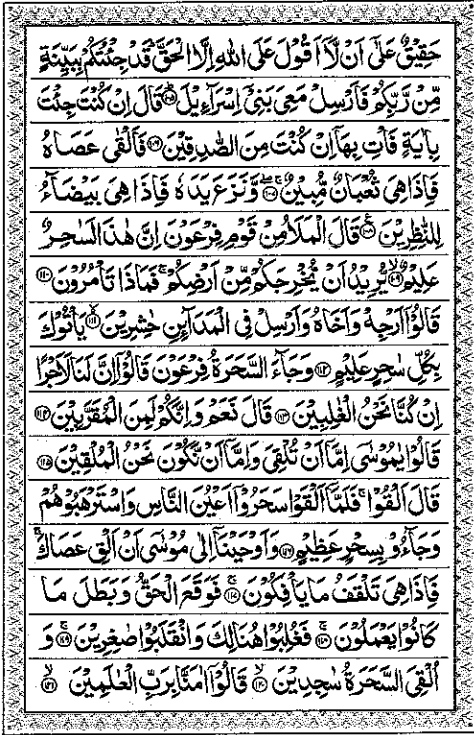 حَقِيْقٌ عَلٰٓى اَنْ لَّاۤ اَقُوْلَ عَلَى اللّٰهِ اِلَّا الْحَقَّ ؕ قَدْ جِئْتُكُمْ بِبَيِّنَةٍ
مِّنْ رَّبِّكُمْ فَاَرْسِلْ مَعِىَ بَنِىْۤ اِسْرَآءِيْلَ ؕ‏﴿۱۰۵﴾ قَالَ اِنْ كُنْتَ جِئْتَ
بِاٰيَةٍ فَاْتِ بِهَاۤ اِنْ كُنْتَ مِنَ الصّٰدِقِيْنَ ﴿۱۰۶﴾ فَاَلْقٰى عَصَاهُ
فَاِذَا هِىَ ثُعْبَانٌ مُّبِيْنٌ ۚۖ‏﴿۱۰۷﴾ وَّنَزَعَ يَدَهٗ فَاِذَا هِىَ بَيْضَآءُ
لِلنّٰظِرِيْنَ ﴿۱۰۸﴾ قَالَ الْمَلَاُ مِنْ قَوْمِ فِرْعَوْنَ اِنَّ هٰذَا لَسٰحِرٌ
عَلِيْمٌ ۙ‏﴿۱۰۹﴾ يُّرِيْدُ اَنْ يُّخْرِجَكُمْ مِّنْ اَرْضِكُمْ ۚ فَمَاذَا تَاْمُرُوْنَ ﴿۱۱۰﴾
قَالُوْۤا اَرْجِهْ وَاَخَاهُ وَاَرْسِلْ فِى الْمَدَآئِنِ حٰشِرِيْنَ ۙ‏﴿۱۱۱﴾ يَاْتُوْكَ
بِكُلِّ سٰحِرٍ عَلِيْمٍ ﴿۱۱۲﴾ وَجَآءَ السَّحَرَةُ فِرْعَوْنَ قَالُوْۤا اِنَّ لَنَا لَاَجْرًا
اِنْ كُنَّا نَحْنُ الْغٰلِبِيْنَ ﴿۱۱۳﴾ قَالَ نَعَمْ وَاِنَّكُمْ لَمِنَ الْمُقَرَّبِيْنَ ﴿۱۱۴﴾
قَالُوْا يٰمُوْسٰٓى اِمَّاۤ اَنْ تُلْقِىَ وَاِمَّاۤ اَنْ نَّكُوْنَ نَحْنُ الْمُلْقِيْنَ ﴿۱۱۵﴾
قَالَ اَلْقُوْا ۚ فَلَمَّاۤ اَلْقَوْا سَحَرُوْۤا اَعْيُنَ النَّاسِ وَاسْتَرْهَبُوْهُمْ
وَجَآءُوْ بِسِحْرٍ عَظِيْمٍ ﴿۱۱۶﴾ وَاَوْحَيْنَاۤ اِلٰى مُوْسٰٓى اَنْ اَلْقِ عَصَاكَ ۚ
فَاِذَا هِىَ تَلْقَفُ مَا يَاْفِكُوْنَ ۚ‏﴿۱۱۷﴾ فَوَقَعَ الْحَقُّ وَبَطَلَ مَا
كَانُوْا يَعْمَلُوْنَ ۚ‏﴿۱۱۸﴾ فَغُلِبُوْا هُنَالِكَ وَانْقَلَبُوْا صٰغِرِيْنَ ۚ‏﴿۱۱۹﴾ وَ
اُلْقِىَ السَّحَرَةُ سٰجِدِيْنَ ۙ‏﴿۱۲۰﴾ قَالُوْۤا اٰمَنَّا بِرَبِّ الْعٰلَمِيْنَ ۙ‏﴿۱۲۱﴾